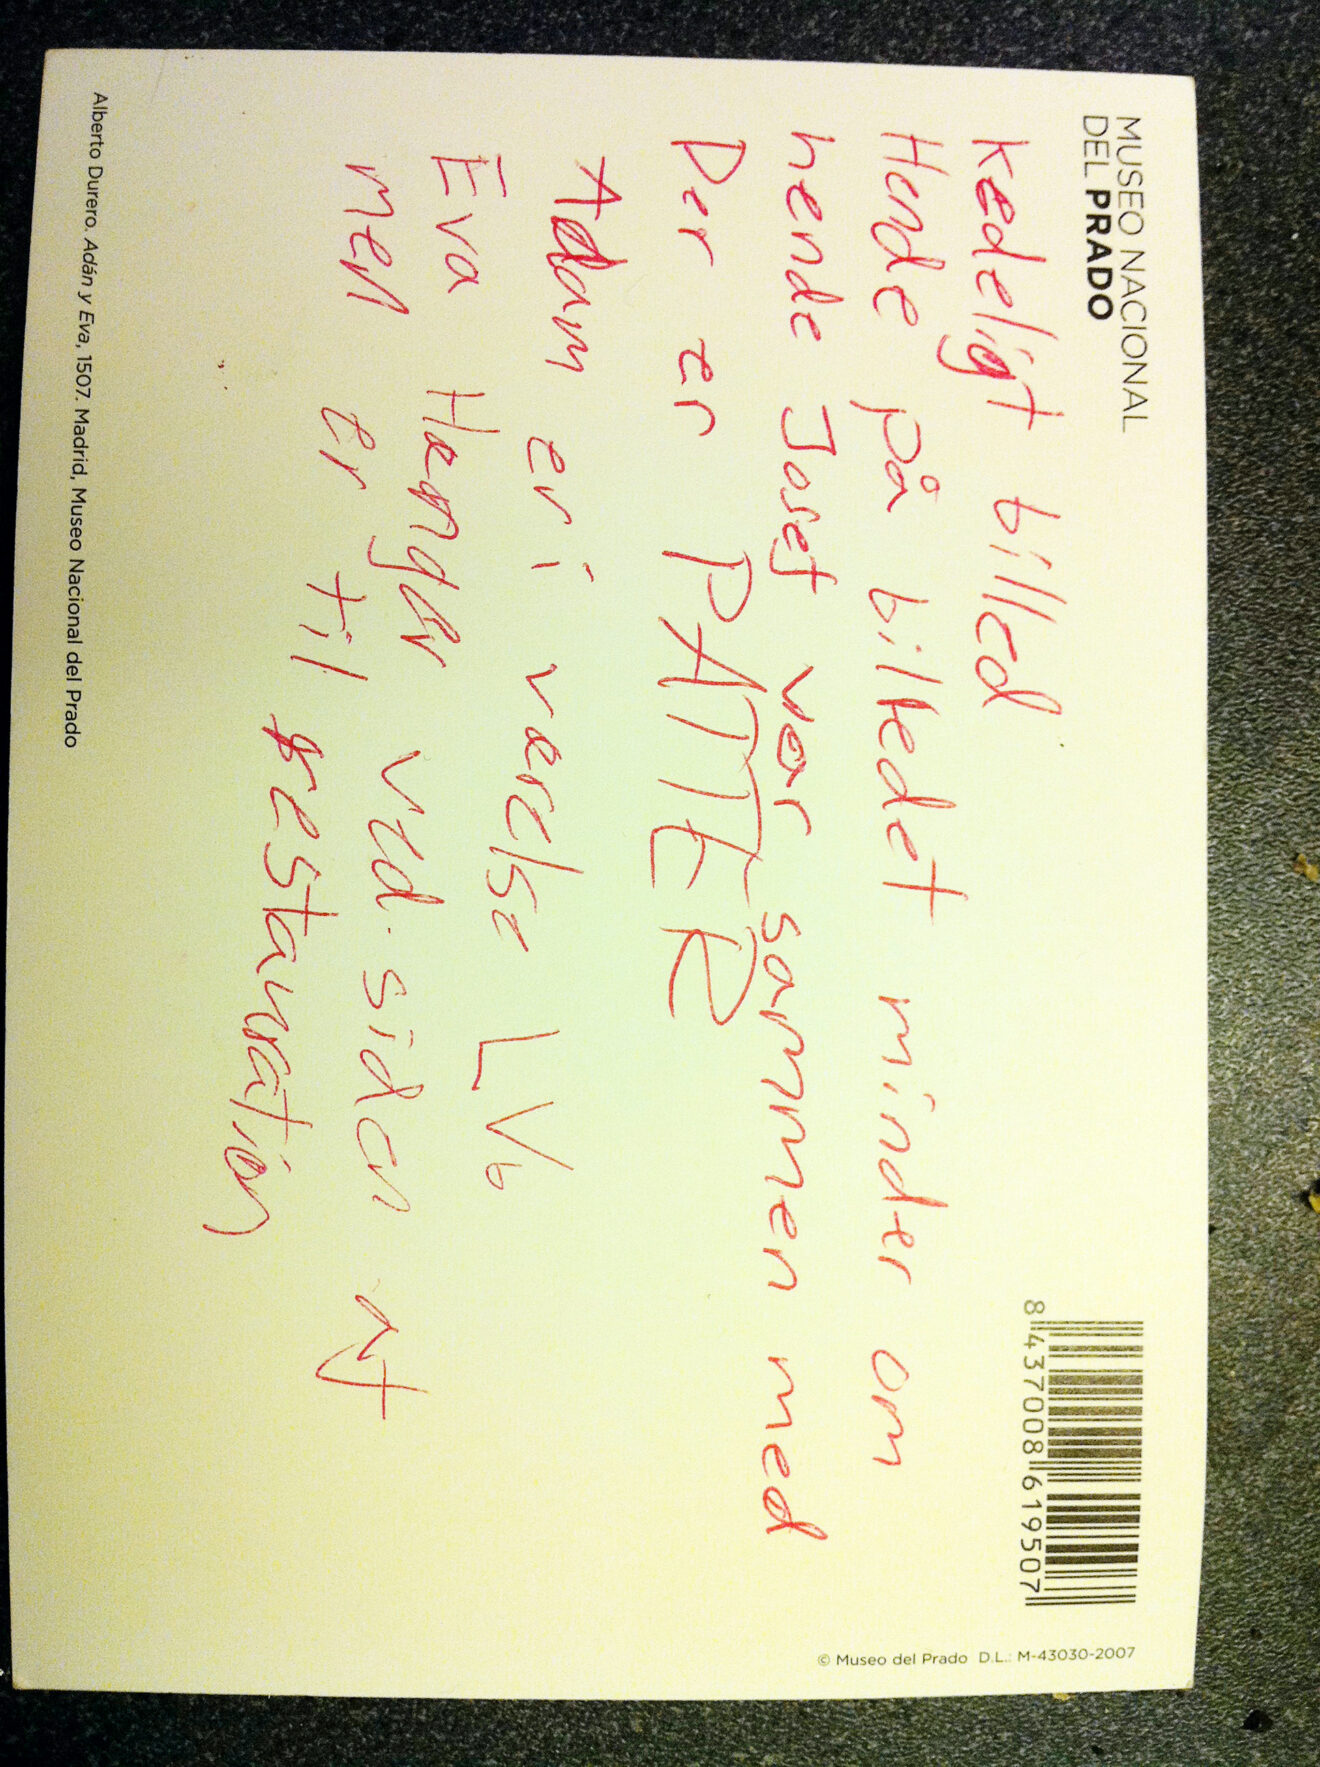 MUSEO NACIONAL
DEL PRADO
8 437008 619507
Kedeligt billed
Hende på billedet minder om
hende Josef var sammen med
Der er PATTER
Adam er i værelse LVb
Eva Hænger ved siden af
men er til restauratión
Alberto Durero. Adán y Eva, 1507. Madrid, Museo Nacional del Prado
© Museo del Prado D.L.: M-43030-2007